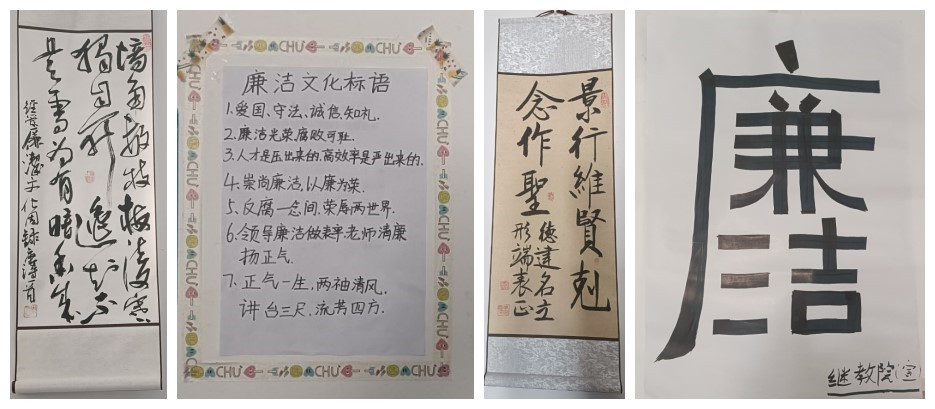 墙角数枝梅凌寒
獨自开遥知不
是雪为有暗香来
廉洁文化标语
1.爱国、守法、诚信,知礼.
2.廉洁光荣.腐败可耻.
3.人才是压出来的,高效率是严出来的.
4.崇尚廉洁,以廉为荣.
5.反腐一念间,荣辱两世界.
6.领导廉洁做表率,老师清廉
扬正气.
7.正气一生,两袖清风.
讲台三尺,流芳四方.
景行維賢剋
念作聖
德建名立
形端表正
廉
洁
继教院(宣)